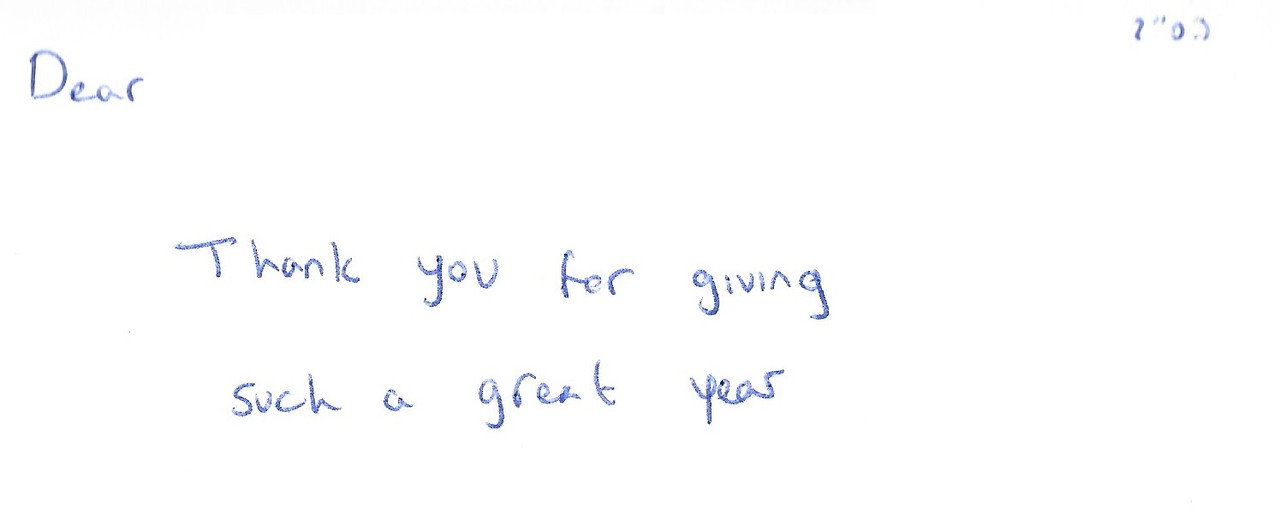 Dear
Thank you for giving
such a great year